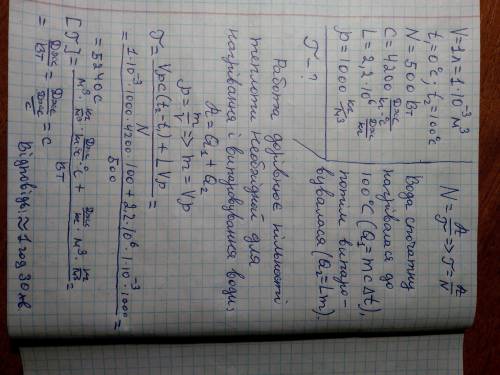 V=1л=1·10⁻³ м³
t₁=0°C, t₂=100°C
N=500 Вт
C=4200 Дж/кг·°C
L=2,2·10⁶ Дж/кг
ρ=1000 кг/м³
T-?
N=A/T ⇒ T=A/N
Вода спочатку
нагрівалася до
100°C (Q₁=mcΔt),
потім випаро-
вувалася (Q₂=Lm).
Работа дорівнює кількості
теплоти необхідной для
нагрівання і випаровування води:
A=Q₁+Q₂
ρ=m/V ⇒ m=Vρ
T=(Vρc(t₂-t₁)+LVρ)/N=
=(1·10⁻³·1000·4200·100+2,2·10⁶·1·10⁻³·1000)/500=
=5240с
[T]=(м³·кг/м³·Дж/кг·°C·°C+Дж/кг·м³·кг/м³)/Вт=
=Дж/Вт=Дж/(Дж/с)=с
Відповідь: ≈1 год 30 хв